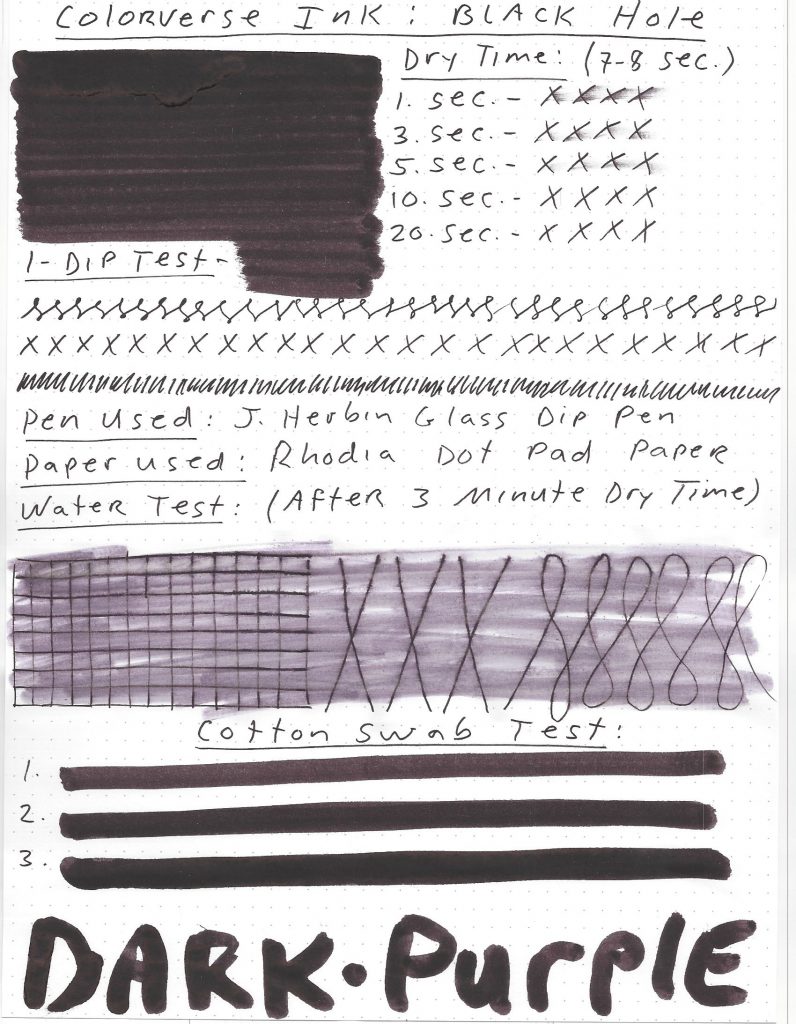 Colorverse Ink: BLACK Hole
Dry Time: (7-8 sec.)
1. sec.- X X X X
3. sec.- X X X X
5. sec.- X X X X
10. sec.- X X X X
20. sec.- X X X X
1- Dip Test-
X X X X X X X X X X X X X X X X X X X X X X X X X X X
Pen Used: J. Herbin Glass Dip Pen
Paper used: Rhodia Dot Pad Paper
Water Test: (After 3 Minute Dry Time)
X X X
Cotton Swab Test:
1.
2.
3.
DARK·PurplE